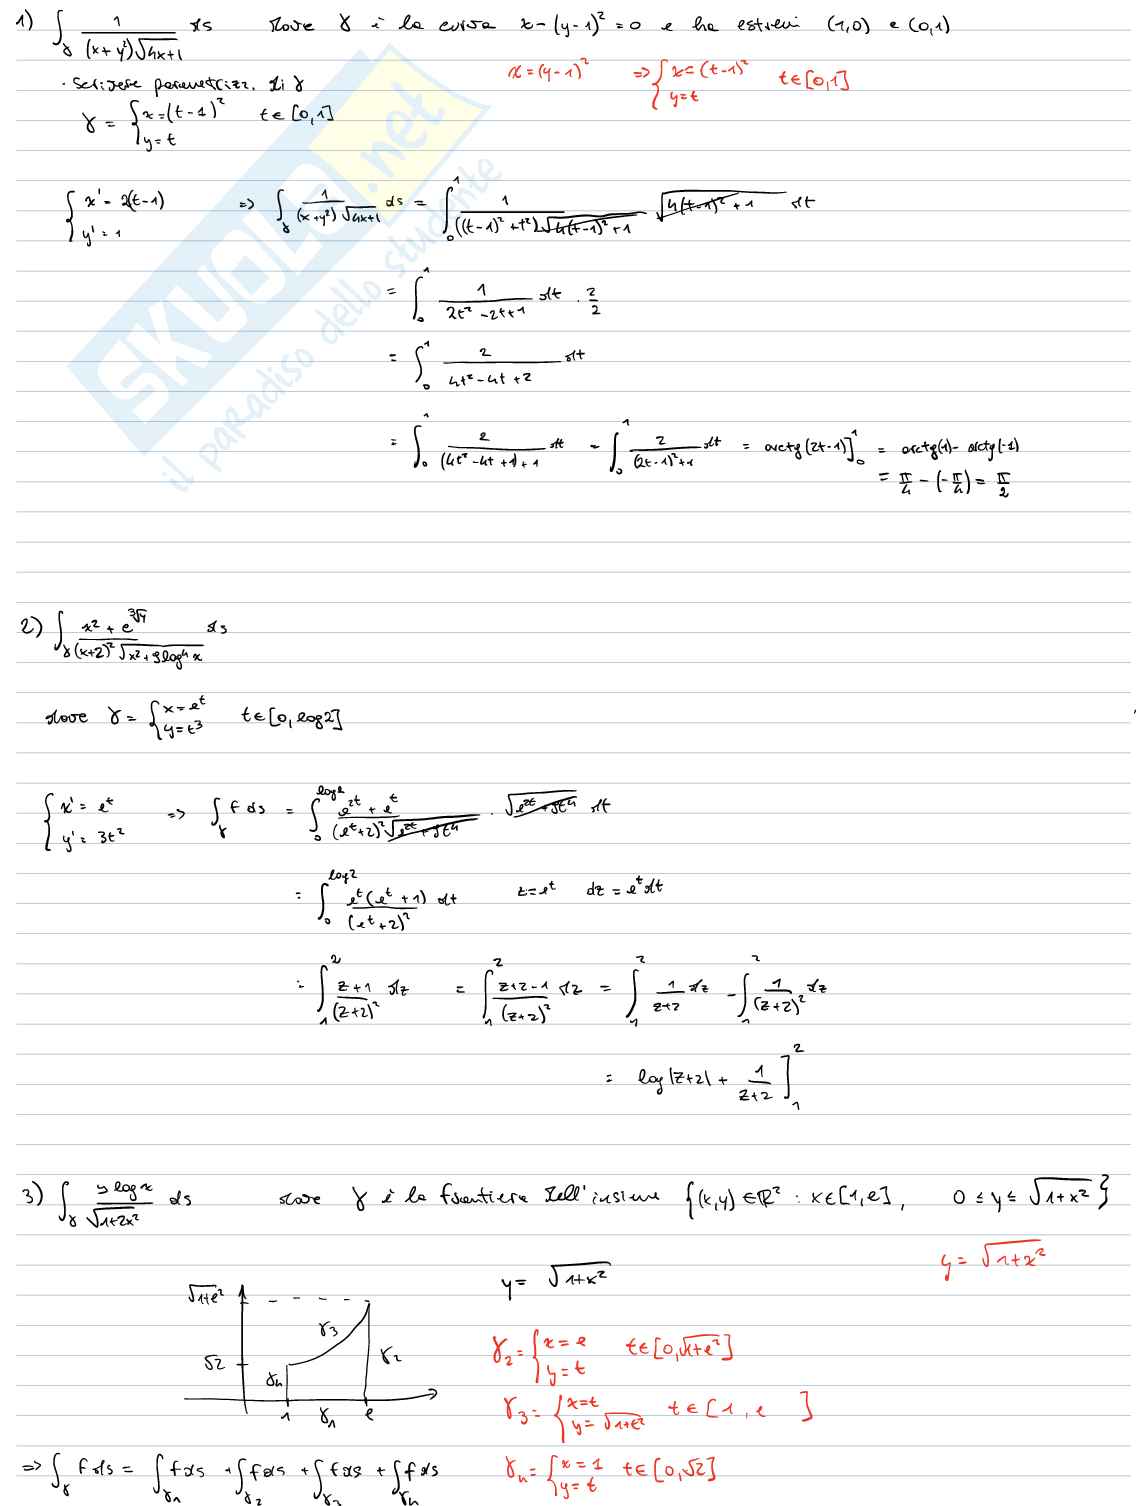 1) ∫_γ 1/((x+y²)√(4x+1)) ds dove γ è la curva x-(y-1)²=0 e ha estremi (1,0) e (0,1)
x=(y-1)² => { x=(t-1)² y=t t∈[0,1]
· scrivere parametrizz. di γ
γ = { x=(t-1)² y=t t∈[0,1]
{ x'=2(t-1) y'=1 => ∫_γ 1/((x+y²)√(4x+1)) ds = ∫_0^1 1/(((t-1)²+t²)√(4(t-1)²+1)) √(4(t-1)²+1) dt
= ∫_0^1 1/(2t²-2t+1) dt · 2/2
= ∫_0^1 2/(4t²-4t+2) dt
= ∫_0^1 2/((4t²-4t+1)+1) dt = ∫_0^1 2/((2t-1)²+1) dt = arctg(2t-1)]_0^1 = arctg(1)-arctg(-1)
= π/4-(-π/4) = π/2
SKUOLA.net
il paradiso dello studente
2) ∫_γ (x²+e^(∛y))/((x+2)²√(x²+9log⁴x)) ds
dove γ = { x=e^t y=t³ t∈[0,log2]
{ x'=e^t y'=3t² => ∫_γ f ds = ∫_0^log2 (e^2t+e^t)/((e^t+2)²√(e^2t+9t⁴)) · √(e^2t+9t⁴) dt
= ∫_0^log2 e^t(e^t+1)/(e^t+2)² dt z=e^t dz=e^t dt
= ∫_1^2 (z+1)/(z+2)² dz = ∫_1^2 (z+2-1)/(z+2)² dz = ∫_1^2 1/(z+2) dz - ∫_1^2 1/(z+2)² dz
= log|z+2| + 1/(z+2) ]_1^2
3) ∫_γ y log x/√(1+2x²) ds dove γ è la frontiera dell'insieme {(x,y)∈ℝ² : x∈[1,e], 0≤y≤√(1+x²)}
y=√(1+x²)
y=√(1+x²)
√(1+e²)
γ3
√2
γ2
γ4
1 γ1 e
γ2 = { x=e y=t t∈[0,√(1+e²)]
γ3 = { x=t y=√(1+t²) t∈[1,e]
=> ∫_γ f ds = ∫_γ1 f ds + ∫_γ2 f ds + ∫_γ3 f ds + ∫_γ4 f ds
γ4 = { x=1 y=t t∈[0,√2]